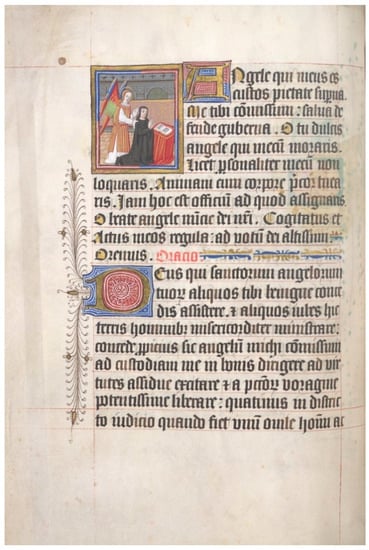 Angele qui meus es
custos pietate superna.
Me tibi commissum: salua de
fende guberna. O tu dulcis
angele qui mecum moraris.
licet personaliter mecum non
loquaris. Animam cum corpore precor tuea
ris. Nam hoc est officium ad quod assignaris.
O beate angele nuncie dei nostri. Cogitatus et
Actus meos regula: ad votum dei altissimi:
Oremus. Oracio
Deus qui sanctorum angelorum
tuorum aliquos tibi benigne conce
dis assistere. et aliquos iubes hic
terenis hominibus misericorditer ministrare:
concede propicius sic angelum michi commissum
ad custodiam me in bonis dirigere ad vir
tutes assidue excitare et a peccatorum voragine
potentissime liberare: quatinus in distric
to iudicio quando fiet vnum ouile